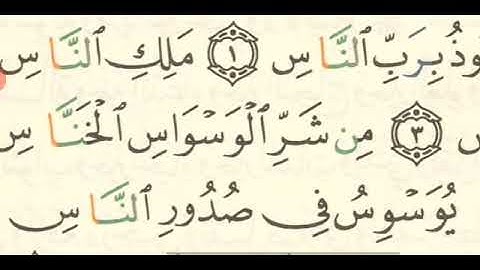 وذُ بِرَبِّ ٱلنَّاسِ ١ مَلِكِ ٱلنَّاسِ
٣ مِن شَرِّ ٱلۡوَسۡوَاسِ ٱلۡخَنَّاسِ
يُوَسۡوِسُ فِي صُدُورِ ٱلنَّاسِ